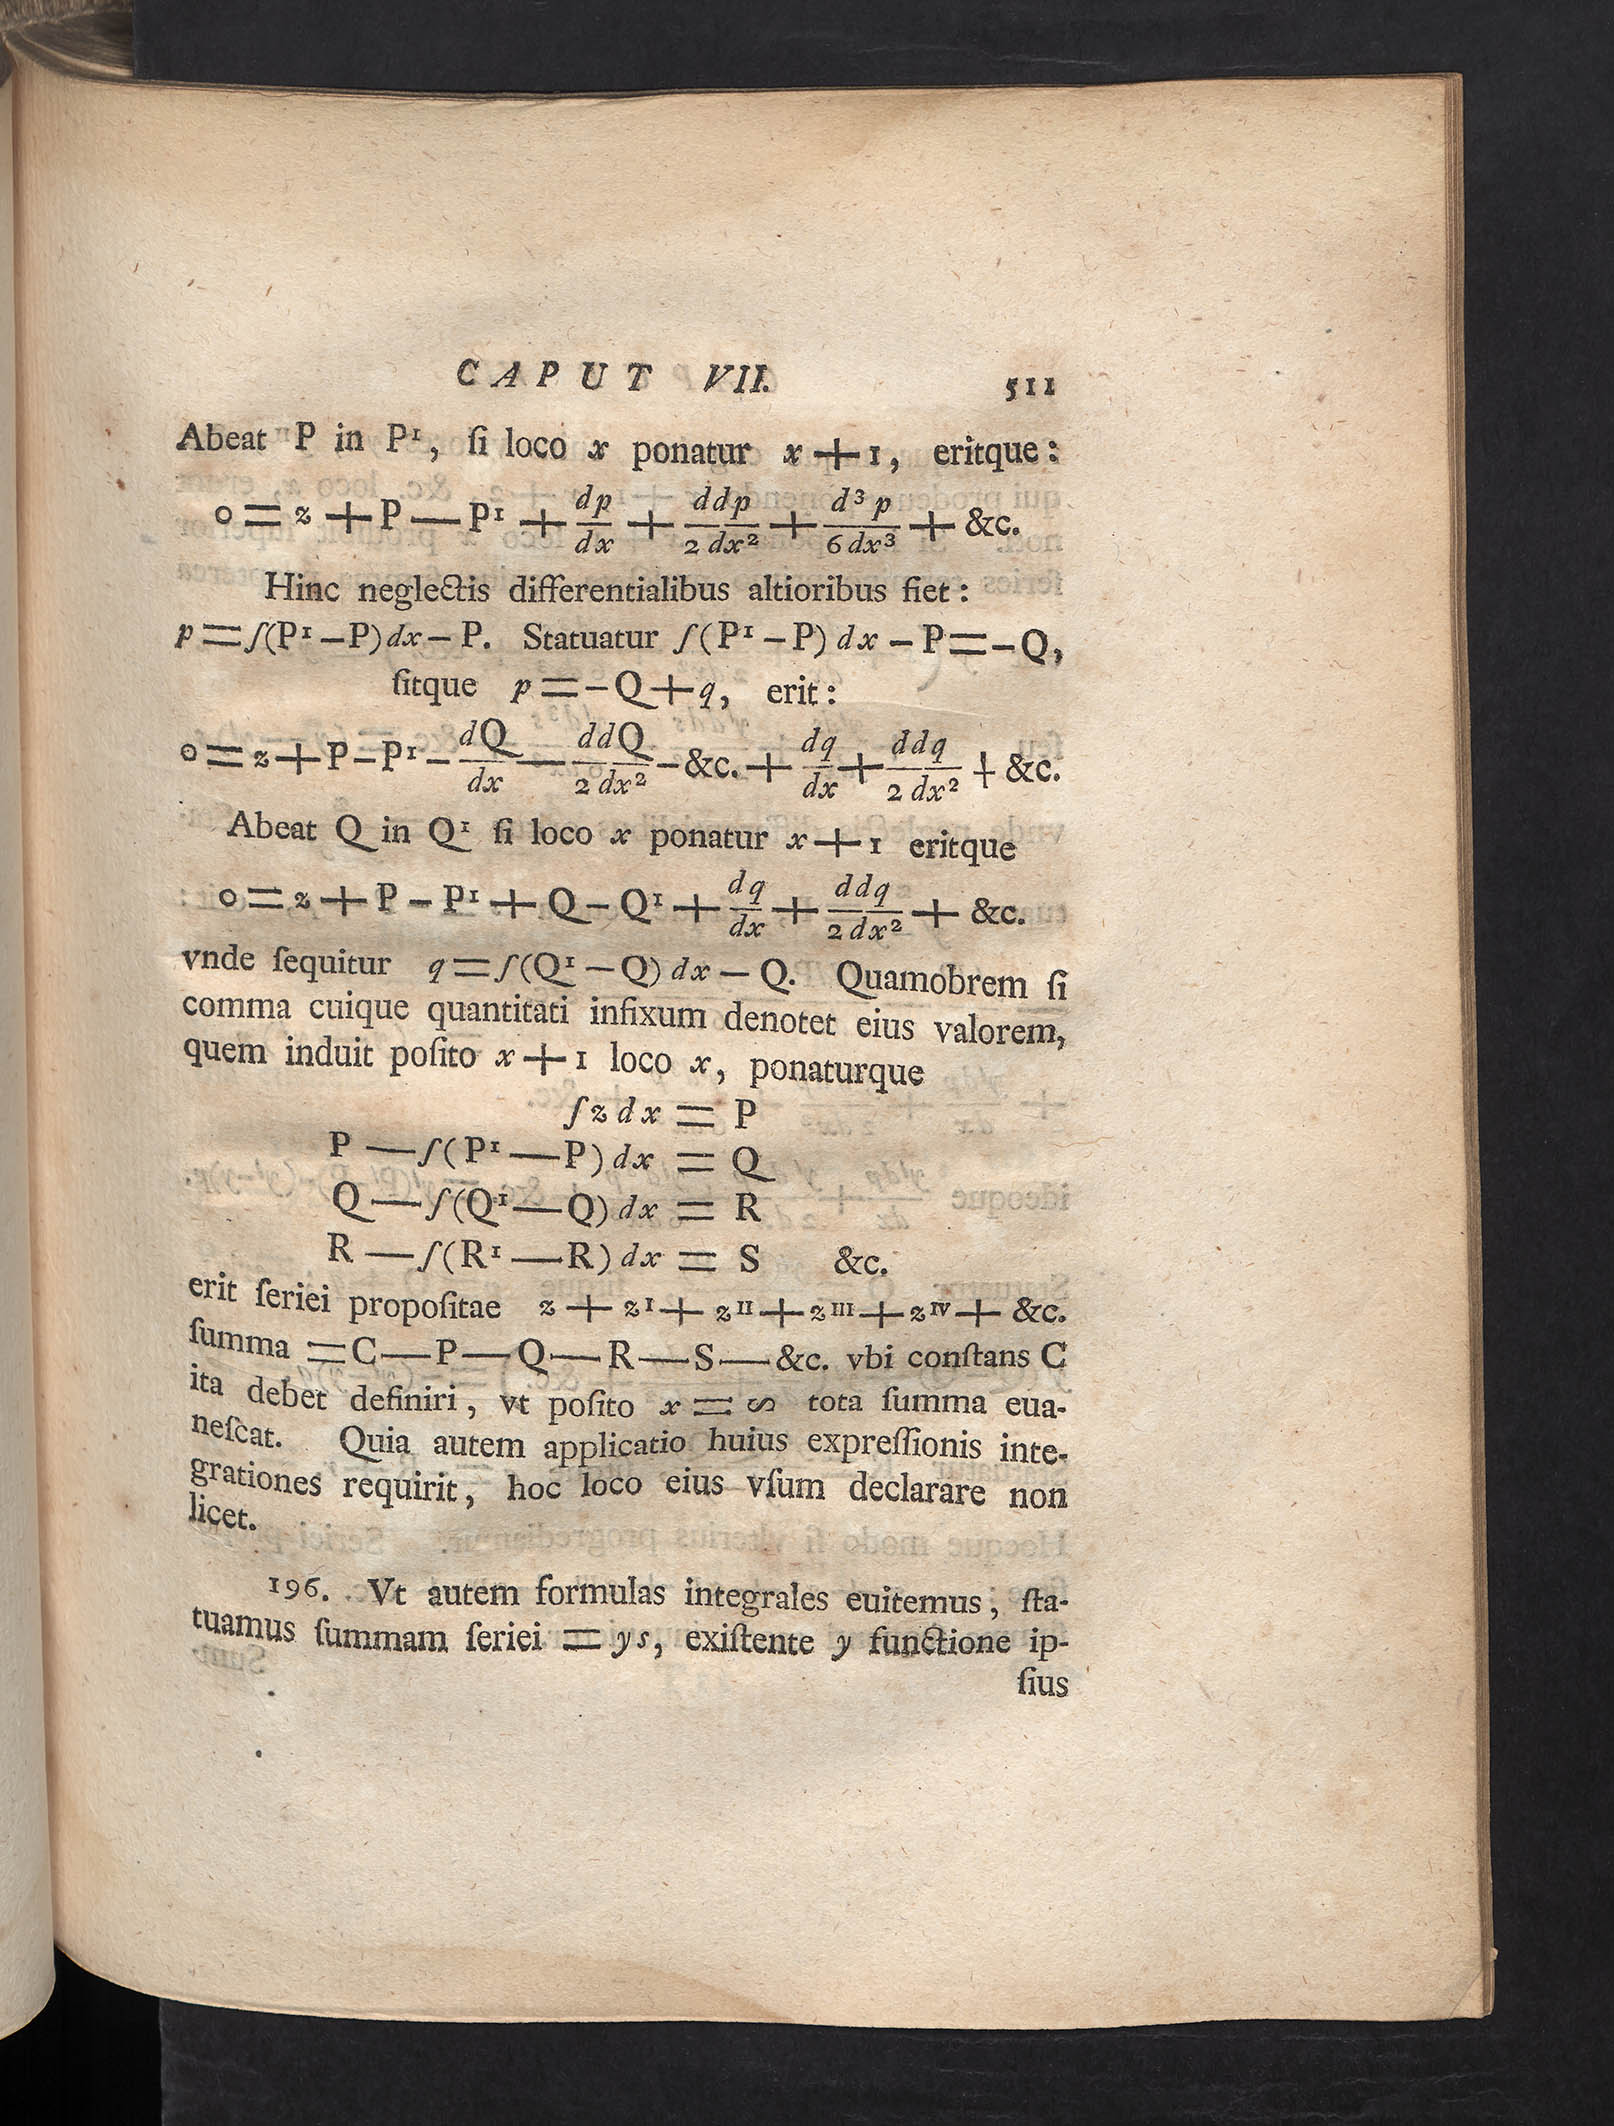 CAPUT VII. 511
Abeat P in Pᴵ, ſi loco x ponatur x+1, eritque:
0 = z + P — Pᴵ + dp/dx + ddp/2dx² + d³p/6dx³ + &c.
Hinc neglectis differentialibus altioribus fiet:
p = ∫(Pᴵ – P) dx – P. Statuatur ∫(Pᴵ – P) dx – P = – Q,
ſitque p = – Q + q, erit:
0 = z + P – Pᴵ – dQ/dx — ddQ/2dx² – &c. + dq/dx + ddq/2dx² + &c.
Abeat Q in Qᴵ ſi loco x ponatur x+1 eritque
0 = z + P – Pᴵ + Q – Qᴵ + dq/dx + ddq/2dx² + &c.
vnde ſequitur q = ∫(Qᴵ – Q) dx – Q. Quamobrem ſi
comma cuique quantitati infixum denotet eius valorem,
quem induit poſito x+1 loco x, ponaturque
∫z dx = P
P — ∫(Pᴵ — P) dx = Q
Q — ∫(Qᴵ — Q) dx = R
R — ∫(Rᴵ — R) dx = S &c.
erit ſeriei propoſitae z + zᴵ + zᴵᴵ + zᴵᴵᴵ + zᴵⱽ + &c.
ſumma = C — P — Q — R — S — &c. vbi conſtans C
ita debet definiri, vt poſito x = ∞ tota ſumma eua-
neſcat. Quia autem applicatio huius expreſſionis inte-
grationes requirit, hoc loco eius vſum declarare non
licet.
196. Vt autem formulas integrales euitemus, ſta-
tuamus ſummam ſeriei = ys, exiſtente y functione ip-
ſius